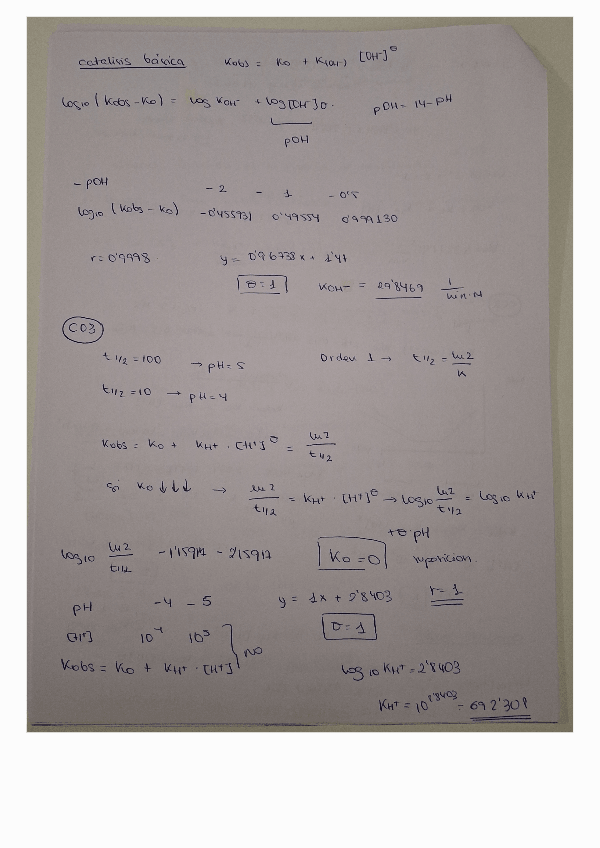 catálisis básica Kobs = Ko + K(OH-) [OH-]^θ
log10 (Kobs - Ko) = log KOH- + log[OH-]θ. pOH = 14 - pH
pOH
- pOH - 2 - 1 - 0'5
log10 (Kobs - Ko) -0'455931 0'49554 0'999130
r = 0'9998. y = 0'96738x + 1'47
θ = 1 KOH- = 29'8469 1/min·M
C03
t1/2 = 100 → pH = 5 Orden 1 → t1/2 = ln2/K
t1/2 = 10 → pH = 4
Kobs = Ko + KH+ · [H+]^θ = ln2/t1/2
Si Ko ↓↓↓ → ln2/t1/2 = KH+ · [H+]^θ → log10 ln2/t1/2 = log10 KH+
+ θ·pH
log10 ln2/t1/2 -1'15917 - 2'15917 Ko = 0 suposición.
pH -4 - 5 y = 1x + 2'8403 r = 1
[H+] 10^-4 10^5 θ = 1
Kobs = Ko + KH+ · [H+] } NO
log10 KH+ = 2'8403
KH+ = 10^2'8403 = 692'308